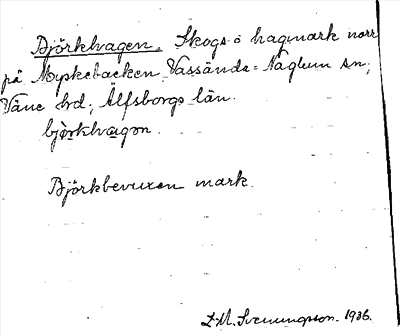 Björkhagen. Skogs o hagmark norr
på Myskebacken Vassända=Naglum sn;
Väne hd; Älfsborgs län.
bjòrkhvagan.
Björkbevuxen mark.
L.M. Svenungsson. 1936.